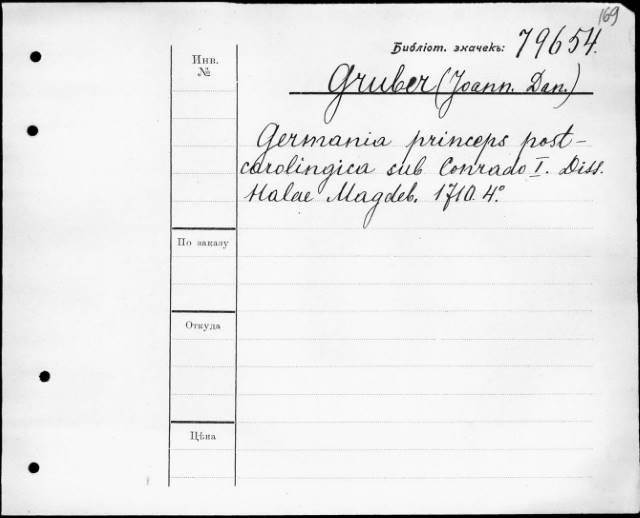 169
Библіот. значекъ: 79654.
Инв.
№
Gruber (Joann. Dan.)
Germania princeps post-
carolingica sub Conrado I. Diss.
Halae Magdeb. 1710. 4°
По заказу
Откуда
Цѣна